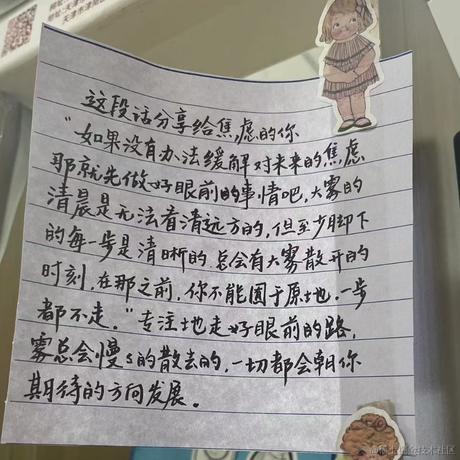 这段话分享给焦虑的你
"如果没有办法缓解对未来的焦虑
那就先做好眼前的事情吧，大雾的
清晨是无法看清远方的，但至少脚下
的每一步是清晰的，总会有大雾散开的
时刻，在那之前，你不能困于原地，一步
都不走。"专注地走好眼前的路，
雾总会慢s的散去的，一切都会朝你
期待的方向发展。